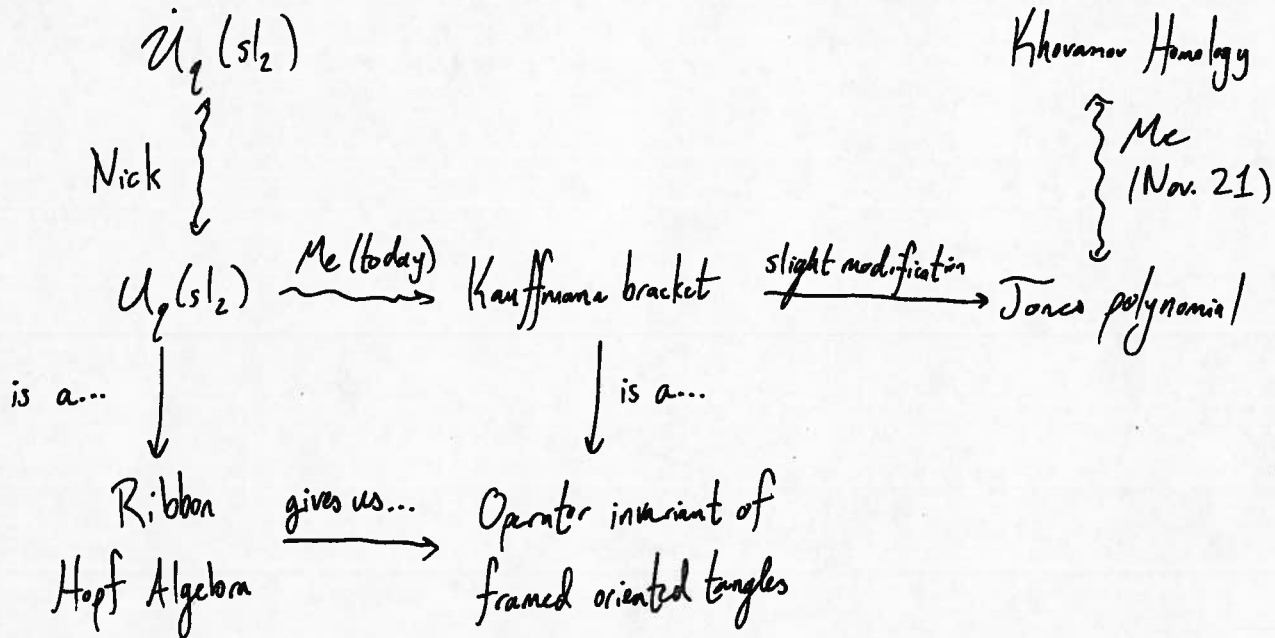 U̇_q(sl₂)
Khovanov Homology
Nick
Me
(Nov. 21)
U_q(sl₂)
Me (today)
Kauffmann bracket
slight modification
Jones polynomial
is a...
is a...
Ribbon
Hopf Algebra
gives us...
Operator invariant of
framed oriented tangles